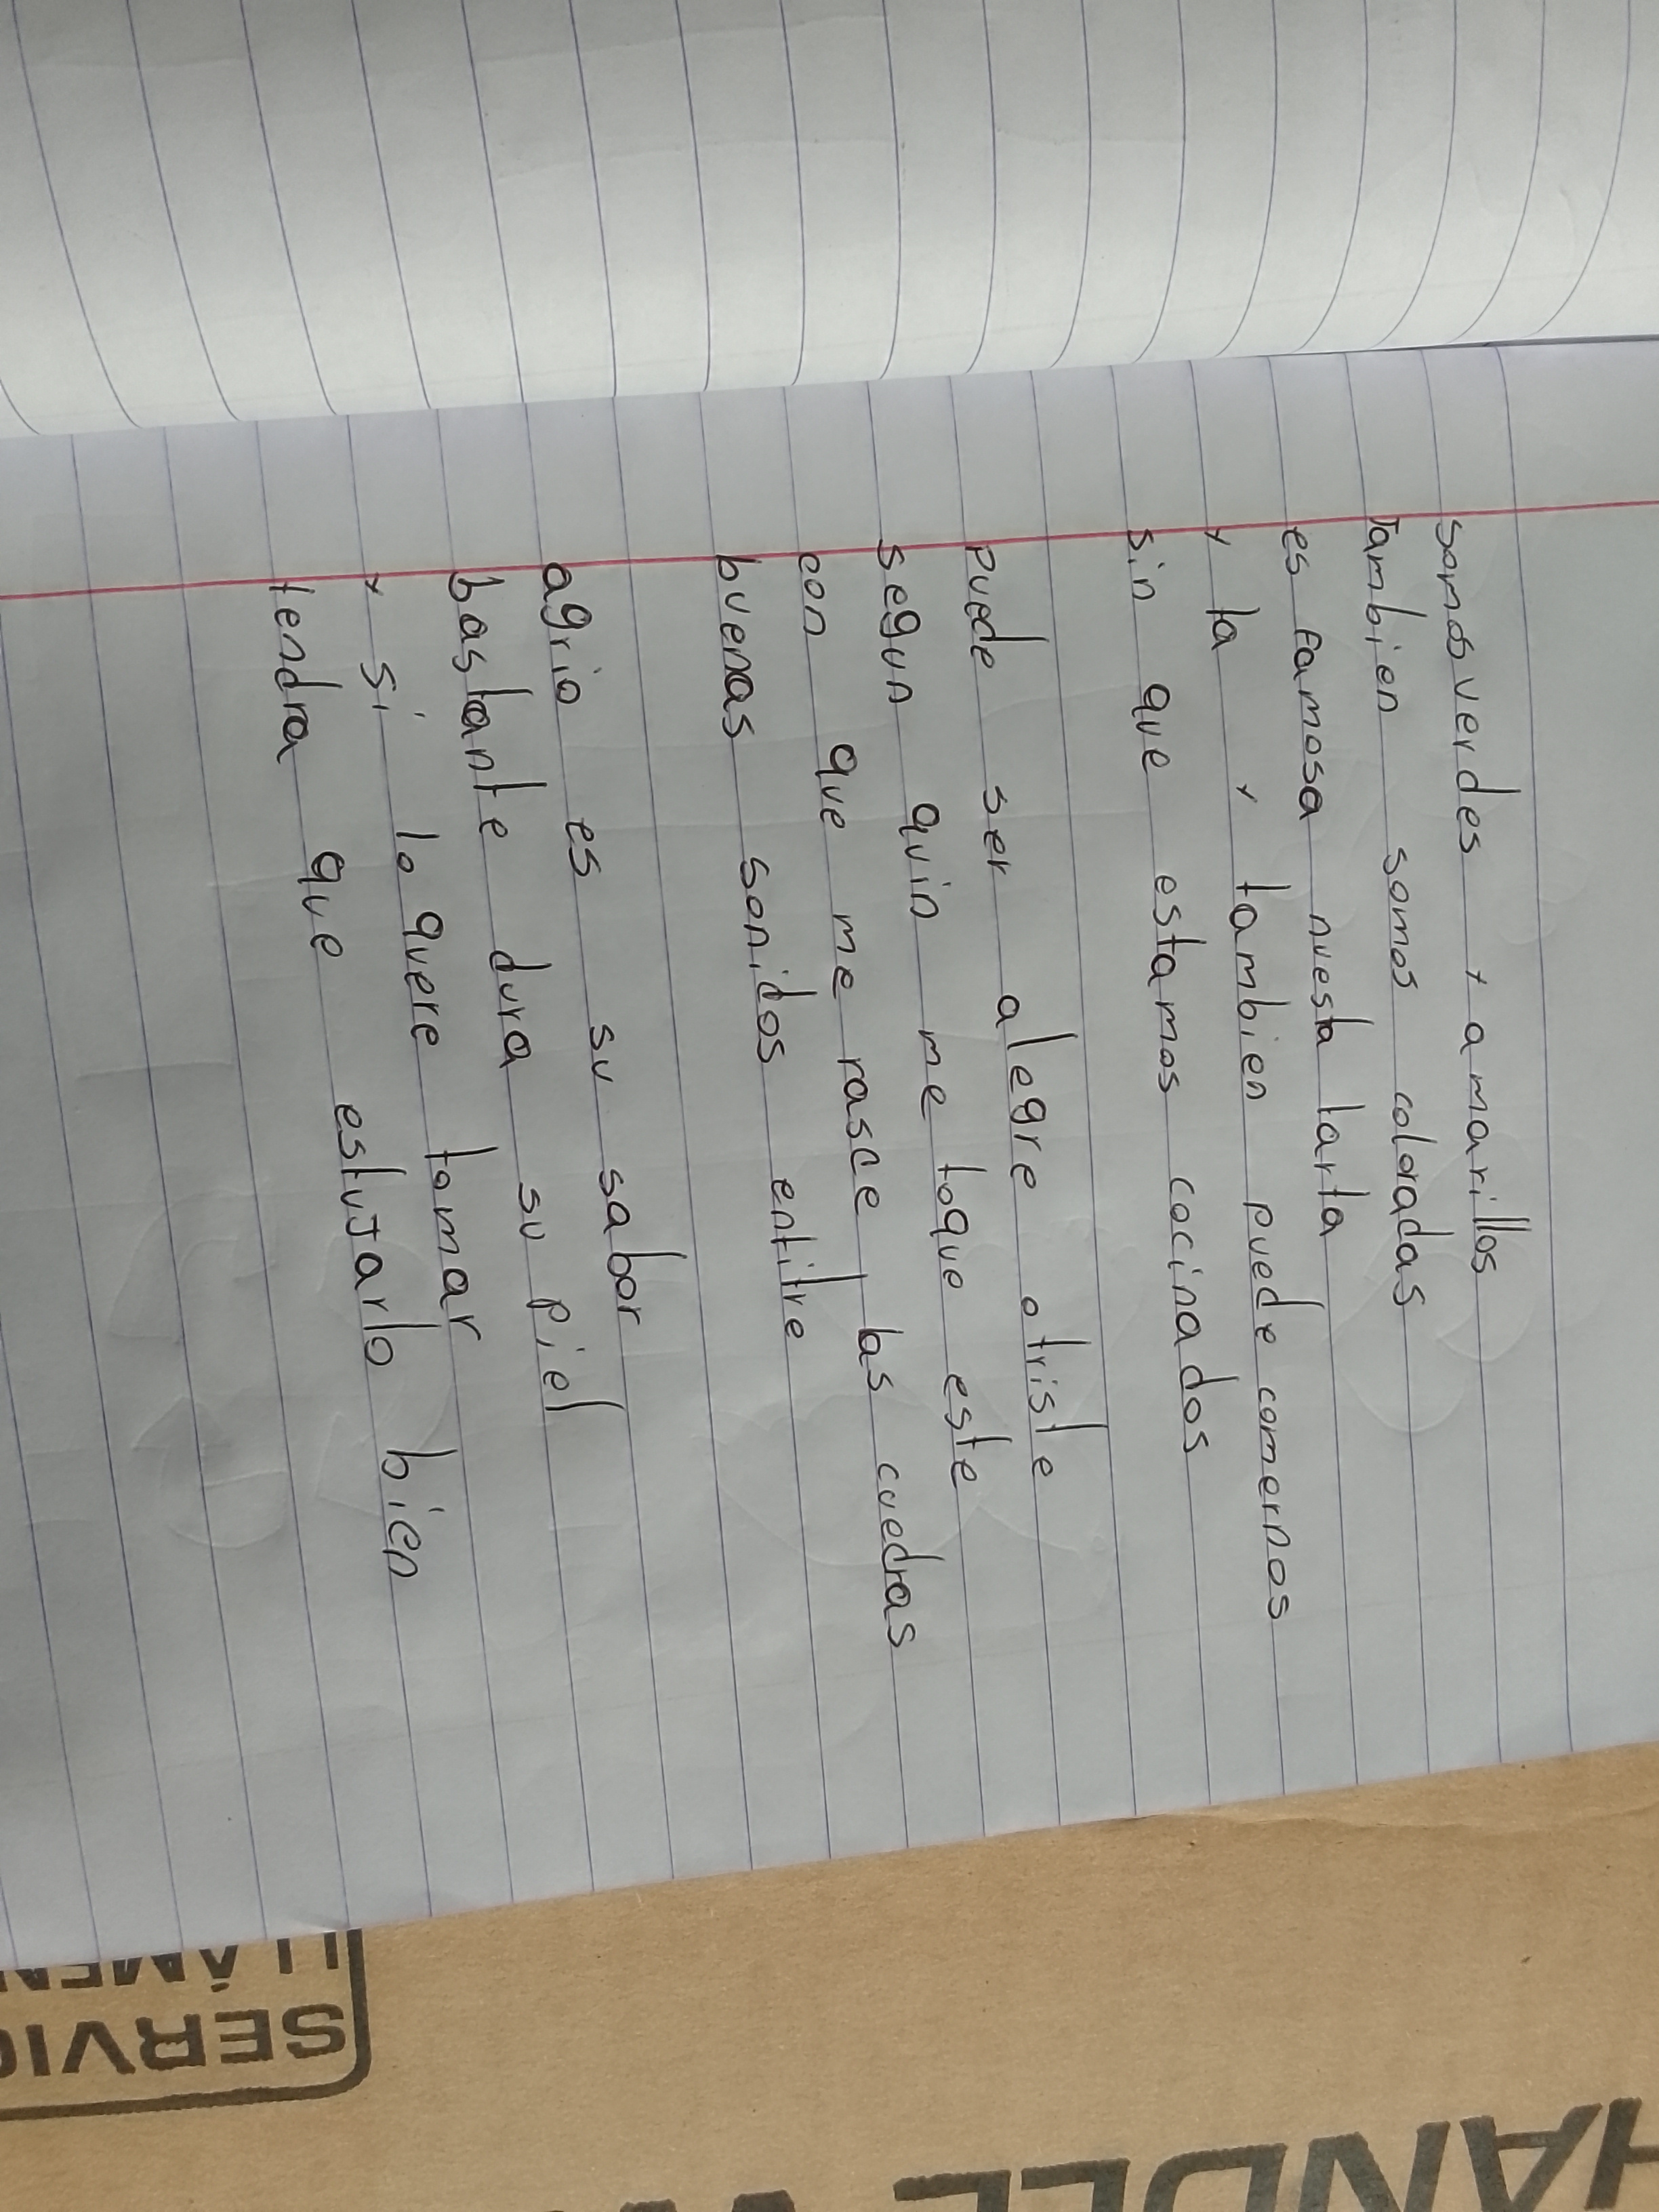 somos verdes y amarillos
Tambien somos coloradas
es famosa nuesta tarta
y la y tambien puede comernos
sin que estamos cocinados
puede ser alegre o triste
segun quin me toque este
con que me rasce las cuedras
buenas sonidos entitre
agrio es su sabor
bastante dura su piel
y si lo quere tomar
tendra que estujarlo bien
SERVIC
HANDLE